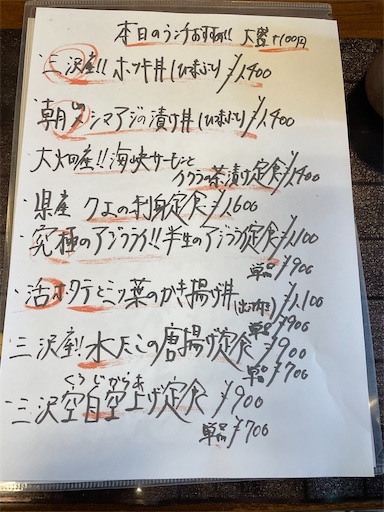 本日のランチおすすめ!! 大盛+100円
三沢産!! ホッキ丼(ひつまぶし) ¥1,400
朝〆シマアジの漬け丼(ひつまぶし) ¥1,400
大畑産!! 海峡サーモンと
イクラの茶漬け定食 ¥1,400
・県産 クエの刺身定食 ¥1,600
・究極のアジフライ!! 半生のアジフライ定食 ¥1,100
単品 ¥900
・活ホタテと三ッ葉のかき揚げ丼(出汁付き) ¥1,100
単品 ¥900
・三沢産!! 水たこの唐揚げ定食 ¥900
単品 ¥700
くうじからあげ
・三沢空自空上げ定食 ¥900
単品 ¥700